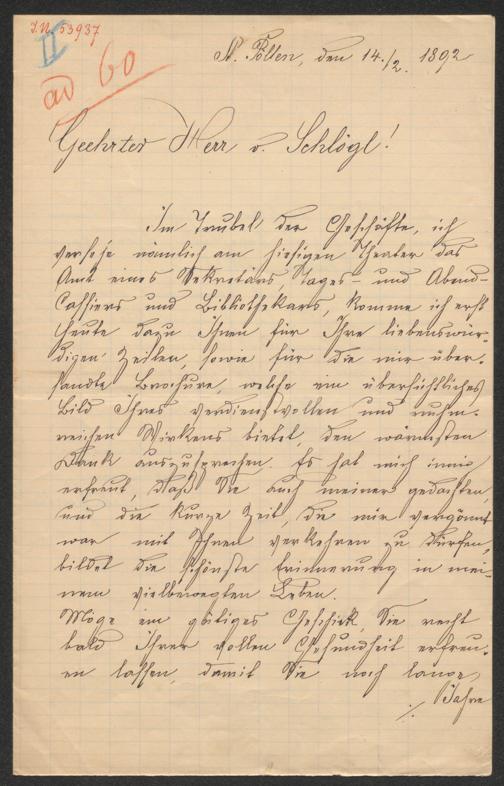 I.N. 53937
II
ad 60
St. Pölten, den 14./2. 1892
Geehrter Herr v. Schlögl!
Im Trubel der Geschäfte, ich
versehe nämlich am hiesigen Theater das
Amt eines Sekretärs, Tages- und Abend-
Cassiers und Bibliothekars, komme ich erst
heute dazu Ihnen für Ihre liebenswür-
digen Zeilen, sowie für die mir über-
sandte Brochure, welche ein übersichtliches
Bild Ihres verdienstvollen und ruhm-
reichen Wirkens bietet, den wärmsten
Dank auszusprechen. Es hat mich innig
erfreut, daß Sie auch meiner gedachten,
und die kurze Zeit, die mir vergönnt
war mit Ihnen verkehren zu dürfen,
bildet die schönste Erinnerung in mei-
nem vielbewegten Leben.
Möge ein gütiges Geschick Sie recht
bald Ihrer vollen Gesundheit erfreu-
en lassen, damit Sie noch lange
Jahre
./.